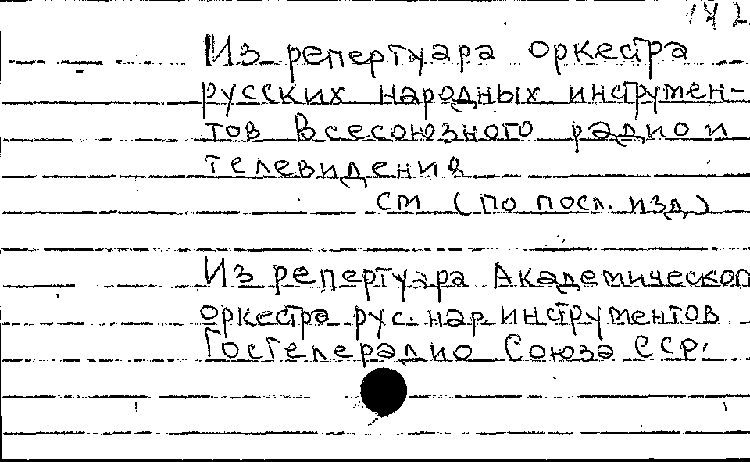 Из репертуара оркестра
русских народных инструмен-
тов Всесоюзного радио и
телевидения
см (по посл. изд)
Из репертуара Академическог
оркестра рус. нар. инструментов
Гостелерадио Союза ССР.